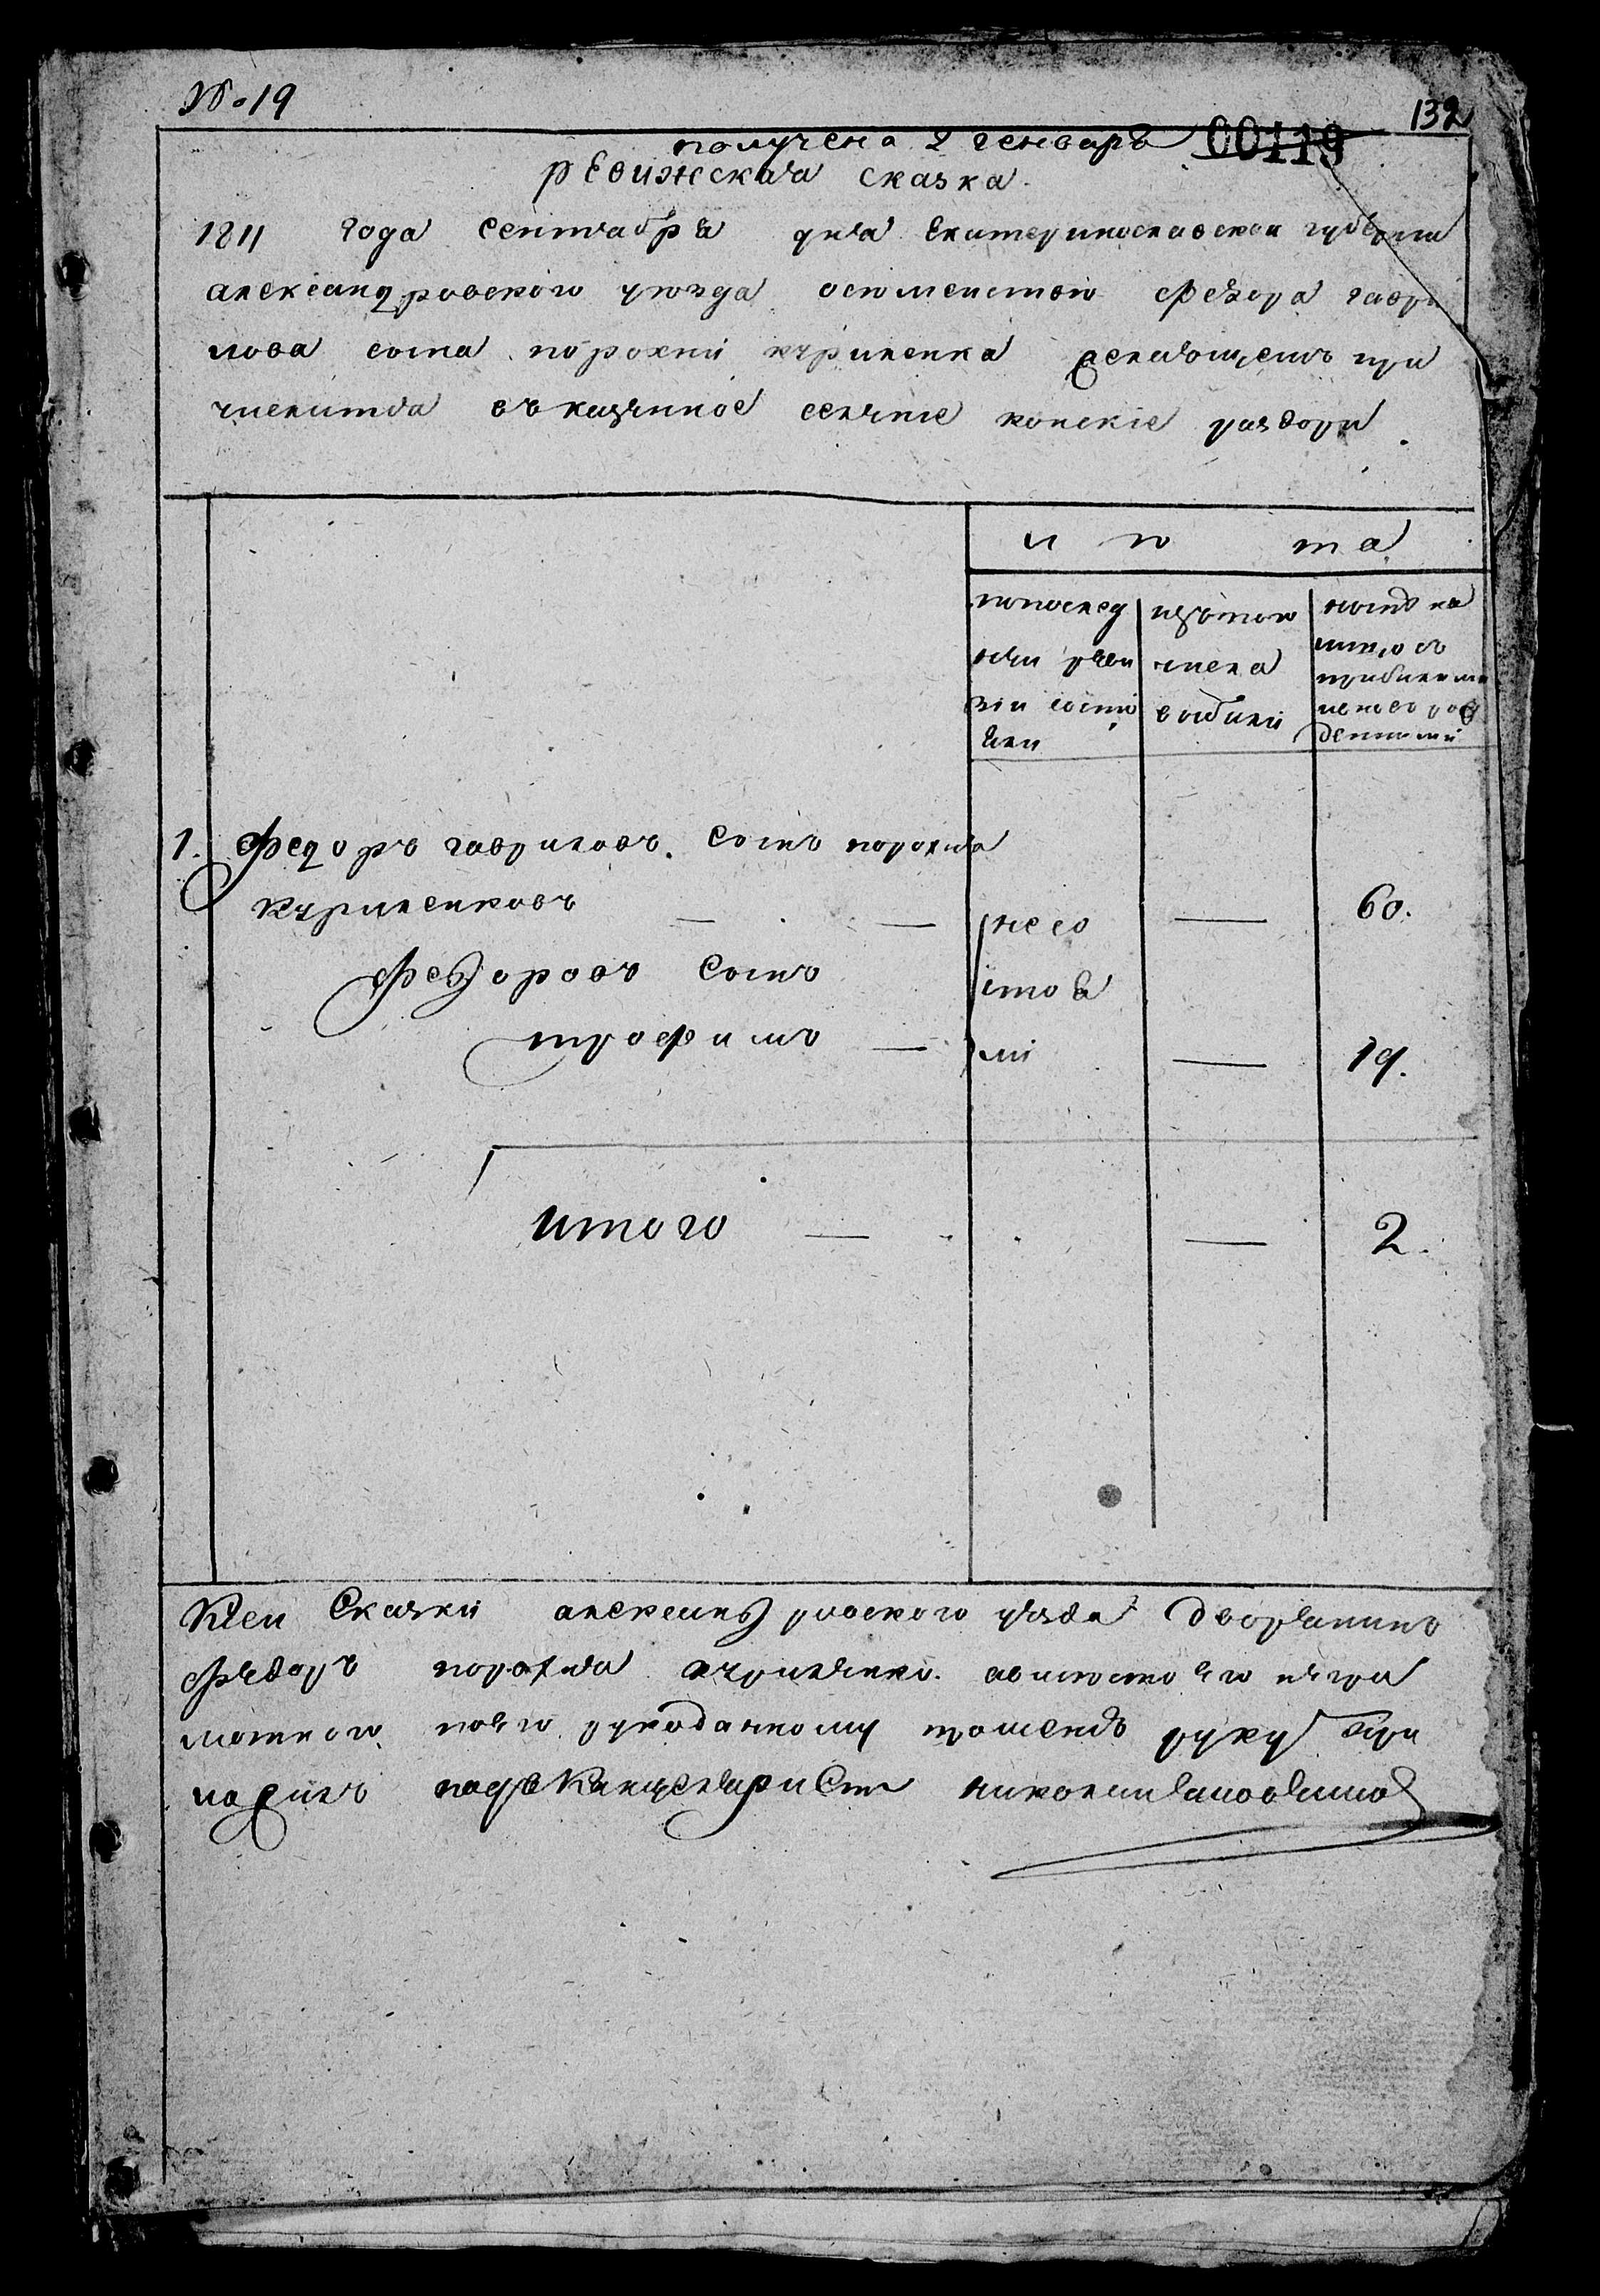 № 19
132
получена 2 генваря 00119
ревижская сказка
1811 года сентября дня Екатеринославской губерни
александровского уезда Федора гаври
лова сына порохни куриленка желающего при
числится въ казенное селение конские раздори
и по та
попослед
ней реви
зіи состо
яли
изътого
числа
выбили
ныне на
лицо съ
1. Федоръ гавриловъ Сынъ порохня
куриленковъ — — не со — 60.
Федоровъ Сынъ стоя
трофимъ — ли — 19.
итого — — 2.
Ксеи Сказки александровского уезда дворянинъ
Федоръ порохня куриленко а вместо его негра
мотного по его рукоданному прошению руку при
ложилъ подъканцеляристъ